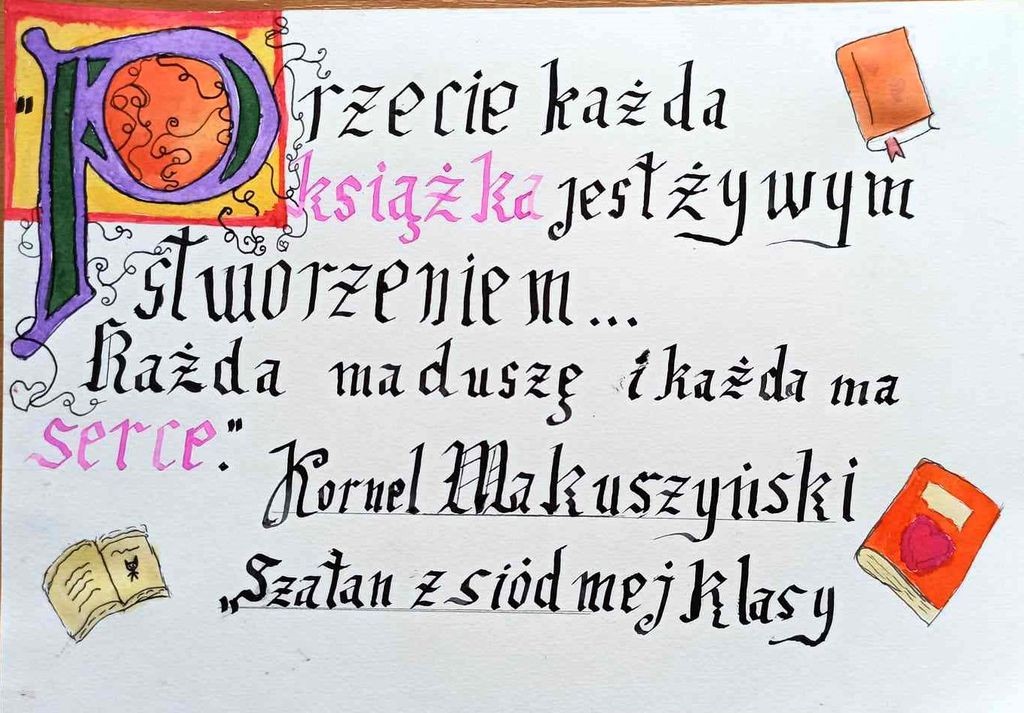 "Przecie każda
książka jest żywym
stworzeniem...
Każda ma duszę i każda ma
serce".
Kornel Makuszyński
„Szatan z siódmej klasy